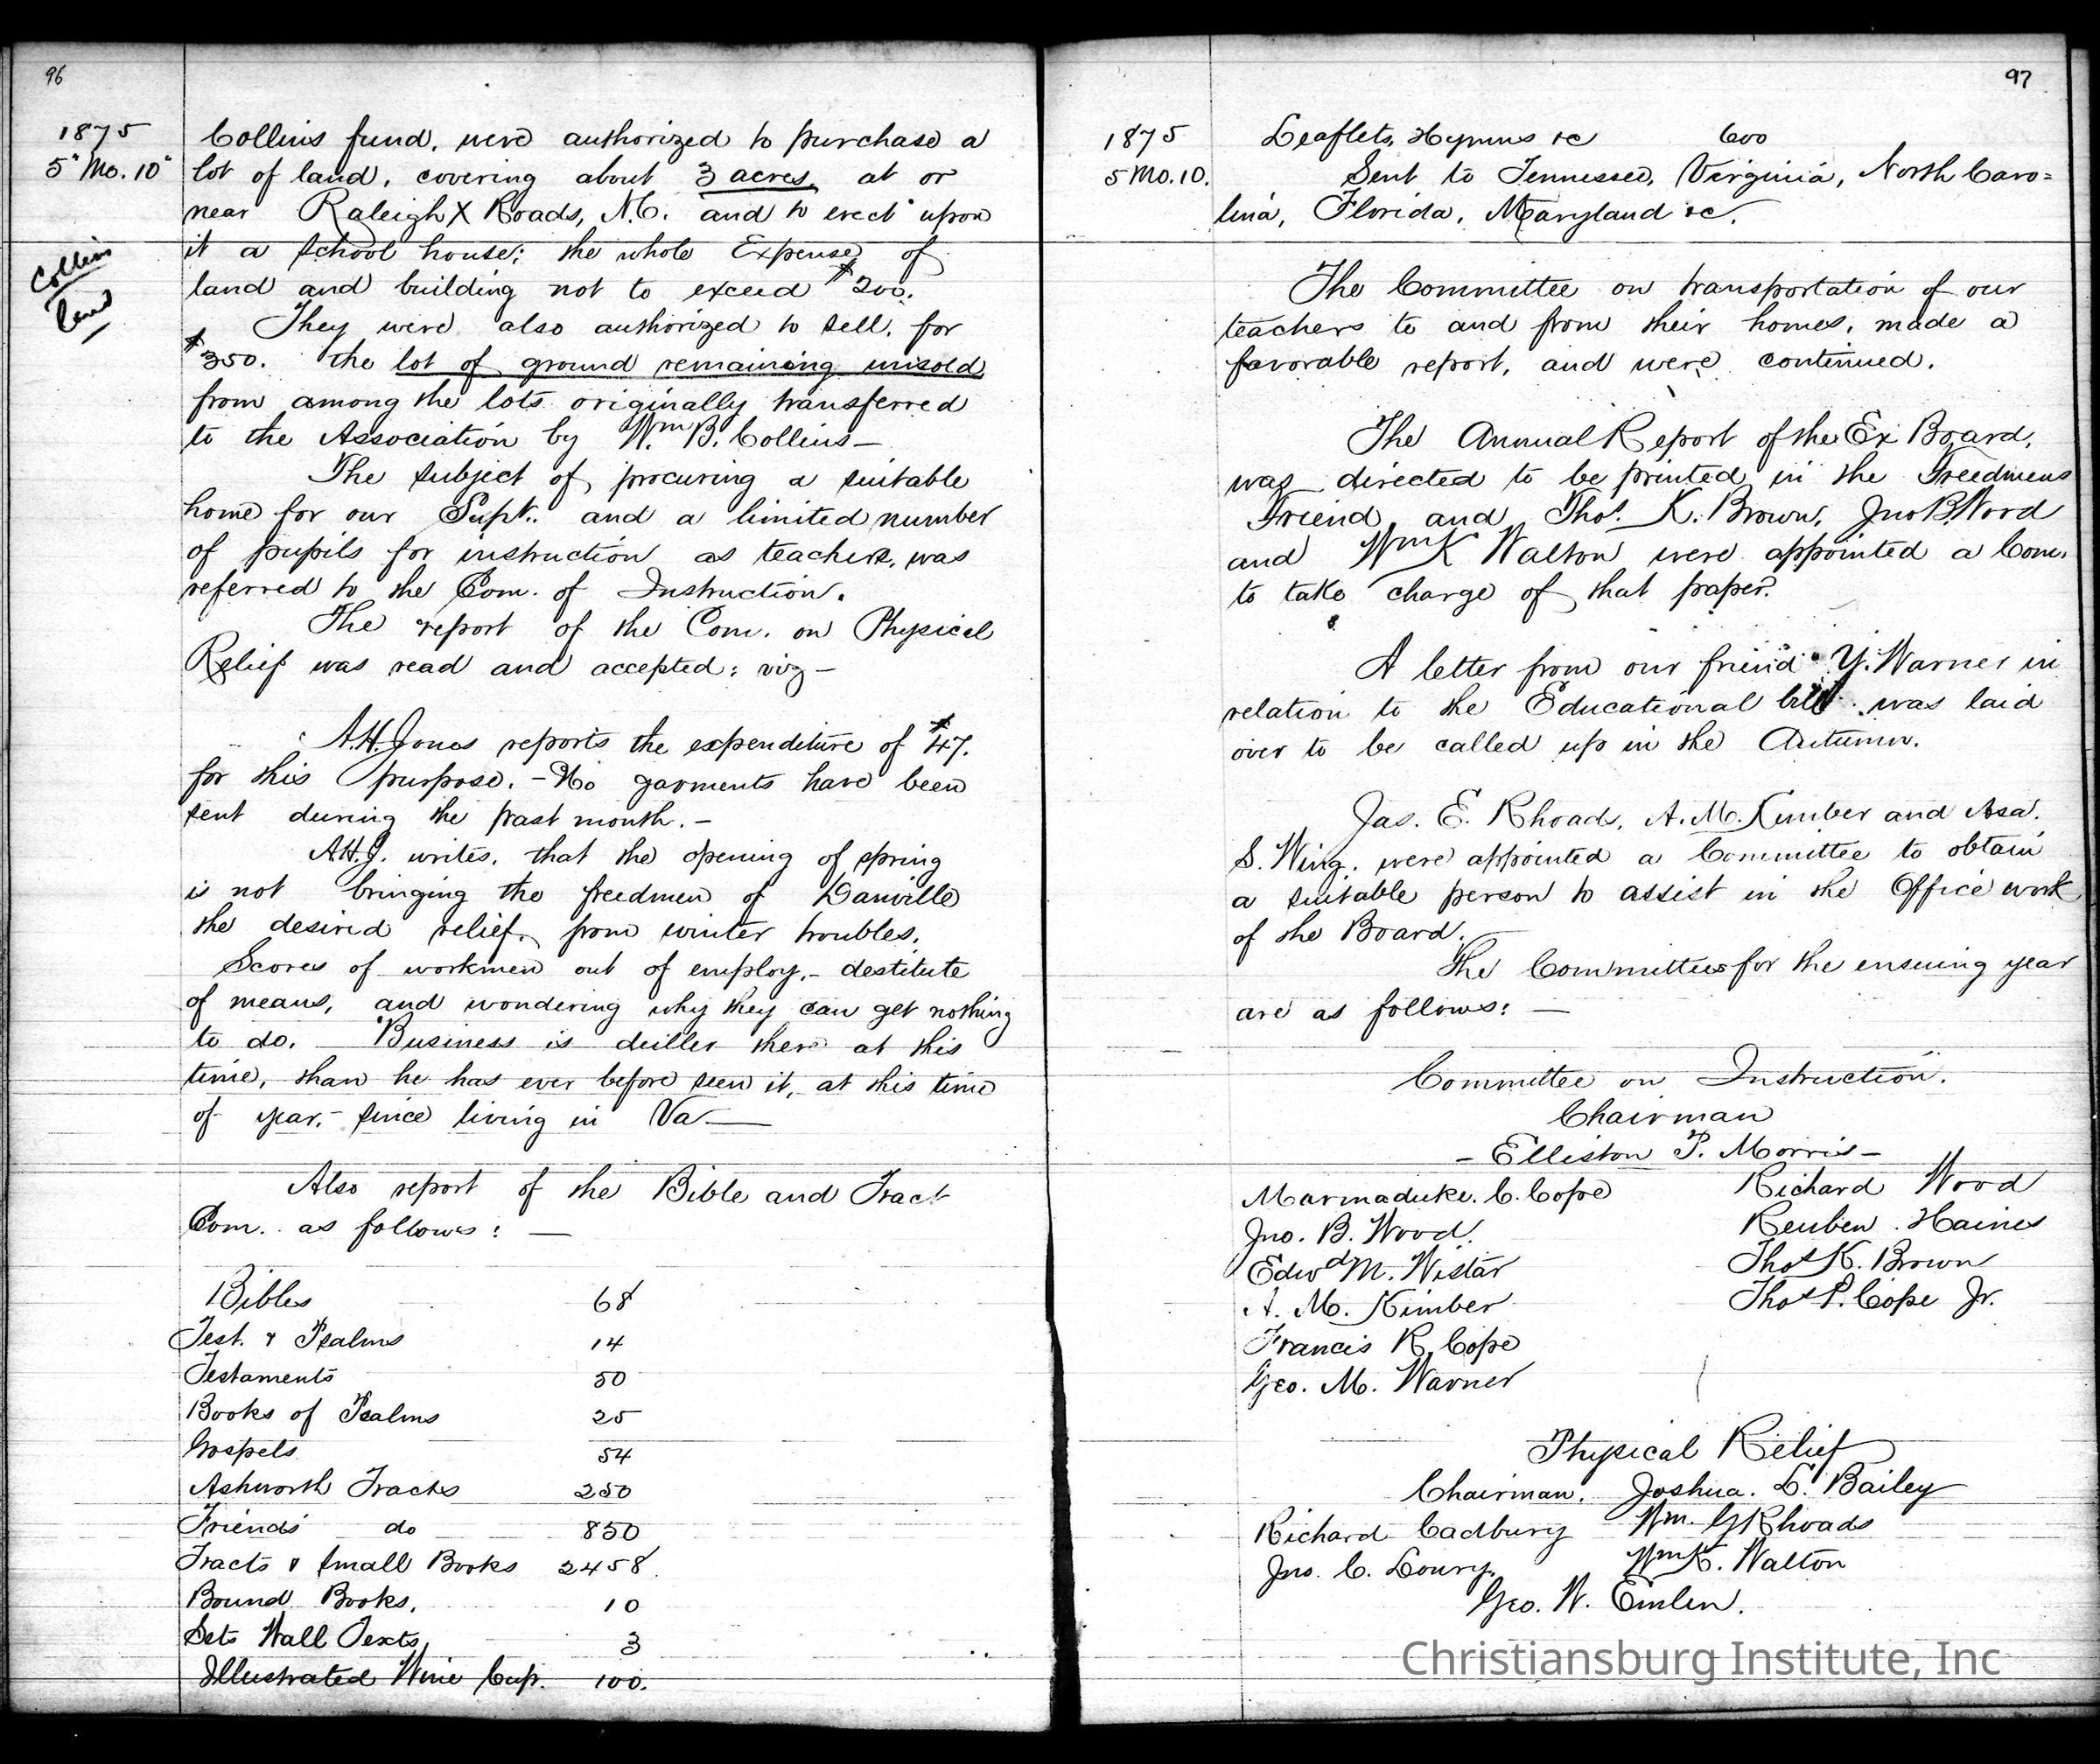 96
1875
5" Mo. 10"
Collins fund, were authorized to purchase a
lot of land, covering about 3 acres, at or
near Raleigh X Roads, N.C. and to erect upon
it a school house; the whole Expense of
land and building not to exceed $200.
Collins
land
They were also authorized to sell, for
$350. the lot of ground remaining unsold
from among the lots originally transferred
to the Association by Wm B. Collins—
The subject of procuring a suitable
home for our Supt. and a limited number
of pupils for instruction as teachers, was
referred to the Com. of Instruction.
The report of the Com. on Physical
Relief was read and accepted: viz—
A.H. Jones reports the expenditure of $47.
for this purpose. – No garments have been
sent during the past month. –
A.H.J. writes, that the opening of spring
is not bringing the freedmen of Danville
the desired relief, from winter troubles.
Scores of workmen out of employ, – destitute
of means, and wondering why they can get nothing
to do. — Business is duller there at this
time, than he has ever before seen it, at this time
of year, – since living in Va—
Also report of the Bible and Tract
Com. as follows: —
Bibles 68
Test. & Psalms 14
Testaments 50
Books of Psalms 25
Gospels 54
Ashworth Tracts 250
Friends' do 850
Tracts & small Books 2458
Bound Books. 10
Sets Wall Texts, 3
Illustrated Wine Cup. 100.
97
1875
5 Mo. 10.
Leaflets, Hymns &c 600
Sent to Tennessee, Virginia, North Caro=
lina, Florida, Maryland &c.
The Committee on transportation of our
teachers to and from their homes, made a
favorable report, and were continued.
The Annual Report of the Ex Board,
was directed to be printed in the Freedmens
Friend and Thos. K. Brown, Jno B. Wood
and Wm K Walton were appointed a Com.
to take charge of that paper.
A letter from our friend Y. Warner in
relation to the Educational bill was laid
over to be called up in the Autumn.
Jas. E. Rhoads, A. M. Kimber and Asa.
S. Wing, were appointed a Committee to obtain
a suitable person to assist in the Office work
of the Board.
The Committees for the ensuing year
are as follows: —
Committee on Instruction.
Chairman
– Elliston P. Morris –
Marmaduke. C. Cope Richard Wood
Jno. B. Wood. Reuben Haines
Edwd M. Wistar Thos K. Brown
A. M. Kimber Thos P. Cope Jr.
Francis R. Cope
Geo. M. Warner
Physical Relief
Chairman. Joshua. L. Bailey
Richard Cadbury Wm. G Rhoads
Jno. C. Lowry. Wm K. Walton
Geo. W. Emlen.
Christiansburg Institute, Inc